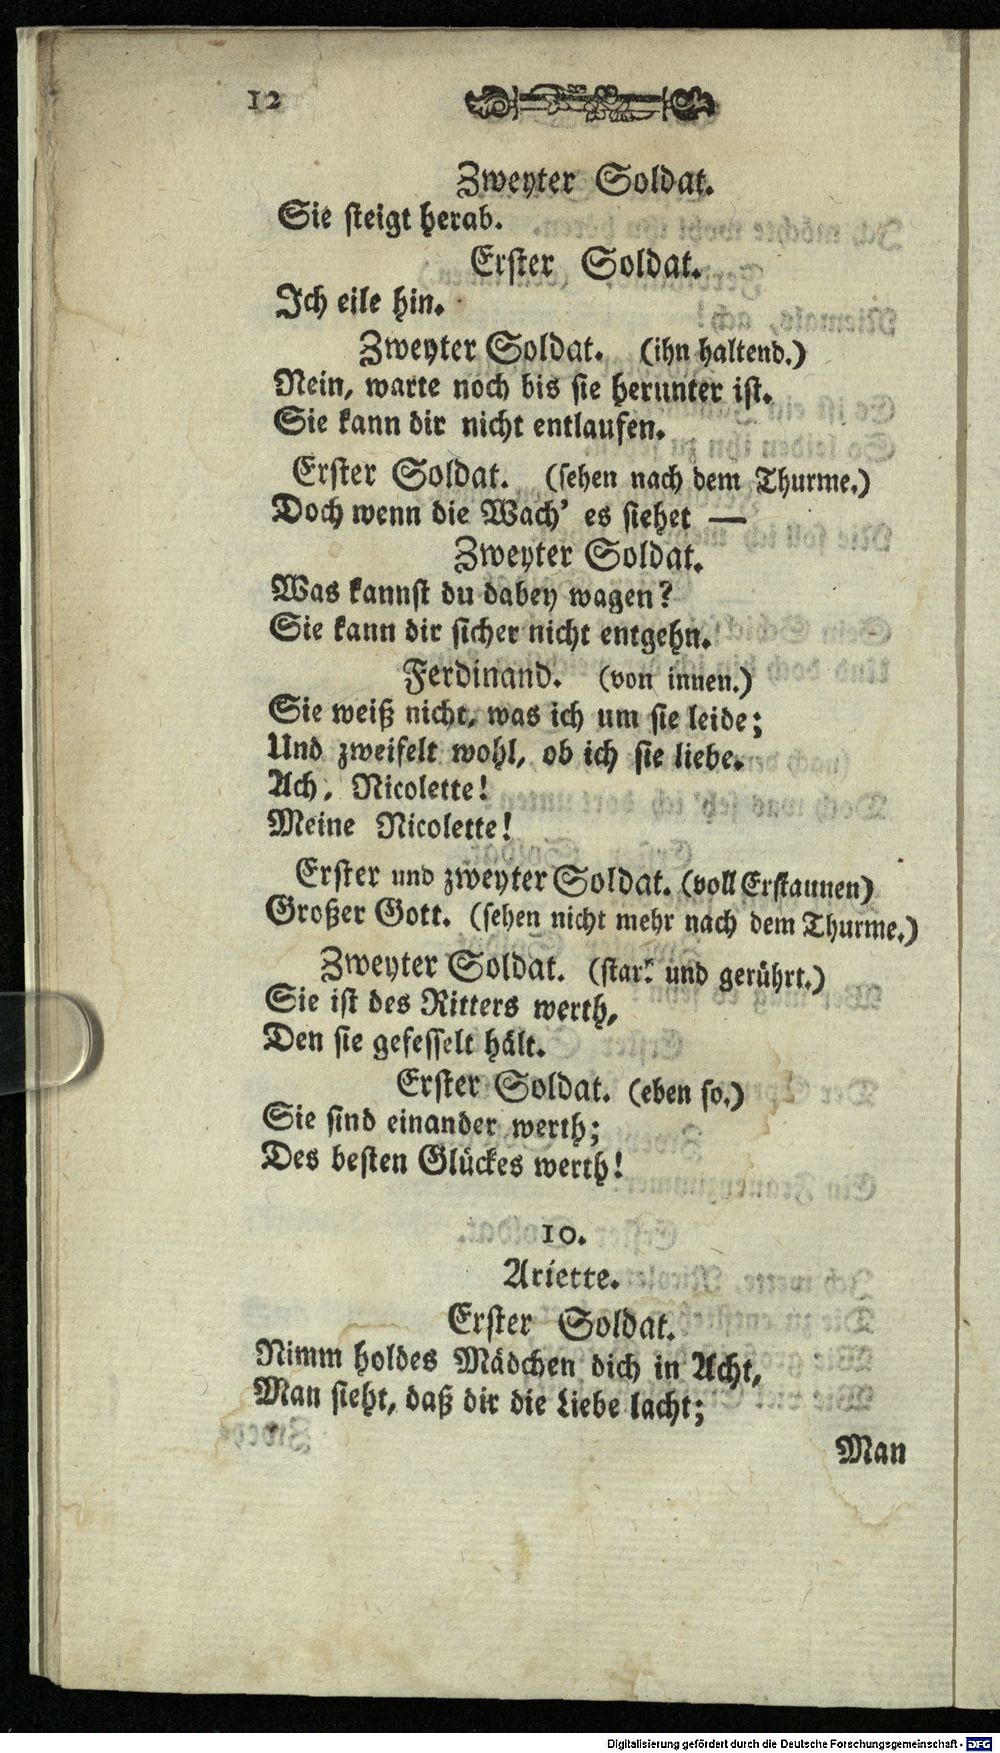 12
Zweyter Soldat.
Sie steigt herab.
Erster Soldat.
Ich eile hin.
Zweyter Soldat. (ihn haltend.)
Nein, warte noch bis sie herunter ist.
Sie kann dir nicht entlaufen.
Erster Soldat. (sehen nach dem Thurme.)
Doch wenn die Wach' es siehet —
Zweyter Soldat.
Was kannst du dabey wagen?
Sie kann dir sicher nicht entgehn.
Ferdinand. (von innen.)
Sie weiß nicht, was ich um sie leide;
Und zweifelt wohl, ob ich sie liebe.
Ach, Nicolette!
Meine Nicolette!
Erster und zweyter Soldat. (voll Erstaunen)
Großer Gott. (sehen nicht mehr nach dem Thurme.)
Zweyter Soldat. (stark und gerührt.)
Sie ist des Ritters werth,
Den sie gefesselt hält.
Erster Soldat. (eben so.)
Sie sind einander werth;
Des besten Glückes werth!
10.
Ariette.
Erster Soldat.
Nimm holdes Mädchen dich in Acht,
Man sieht, daß dir die Liebe lacht;
Man
Digitalisierung gefördert durch die Deutsche Forschungsgemeinschaft - DFG